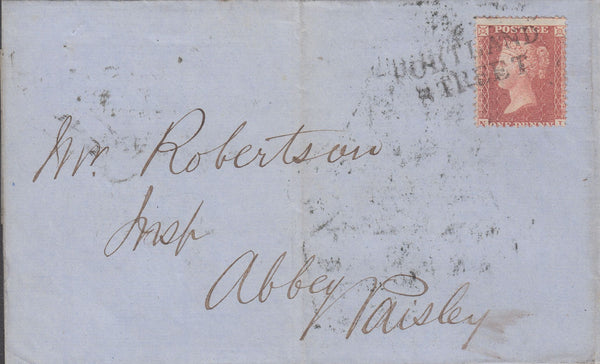 POSTAGE
PORTLAND
STREET
ONE PENNY
Mr. Robertson
Insp
Abbey
Paisley